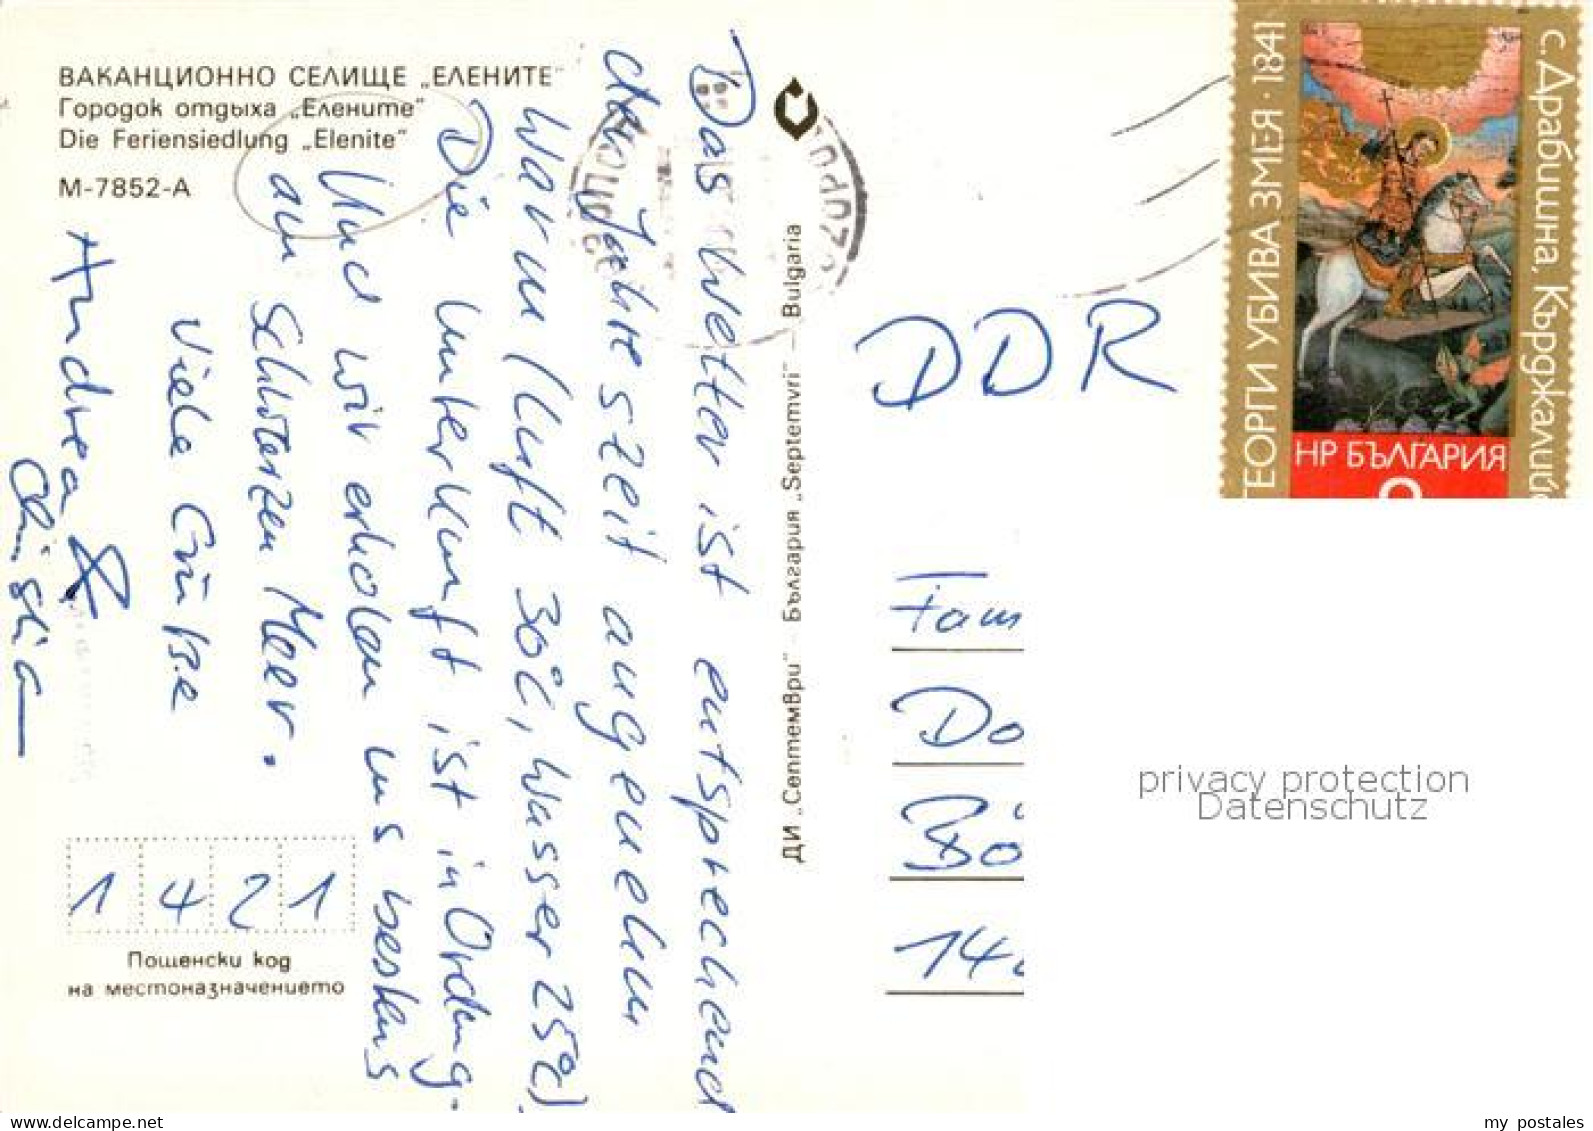 ВАКАНЦИОННО СЕЛИЩЕ „ЕЛЕНИТЕ"
Городок отдыха „Елените"
Die Feriensiedlung „Elenite"
М-7852-А
Das Wetter ist entsprechend
der Jahreszeit angenehm
warm (Luft 30°C, Wasser 25°C).
Die Unterkunft ist in Ordnung.
Und wir erholen uns bestens
am Schwarzen Meer.
Viele Grüße
Andrea &
Christia
1 4 2 1
Пощенски код
на местоназначението
ДИ „Септември" – България „Septemvri" – Bulgaria
ЕОРГИ УБИВА ЗМЕЯ · 1841
с. Драбишна, Кърджалийс
НР БЪЛГАРИЯ
DDR
Fam
Do
Bö
14
privacy protection
Datenschutz
www.delcampe.net
my_postales